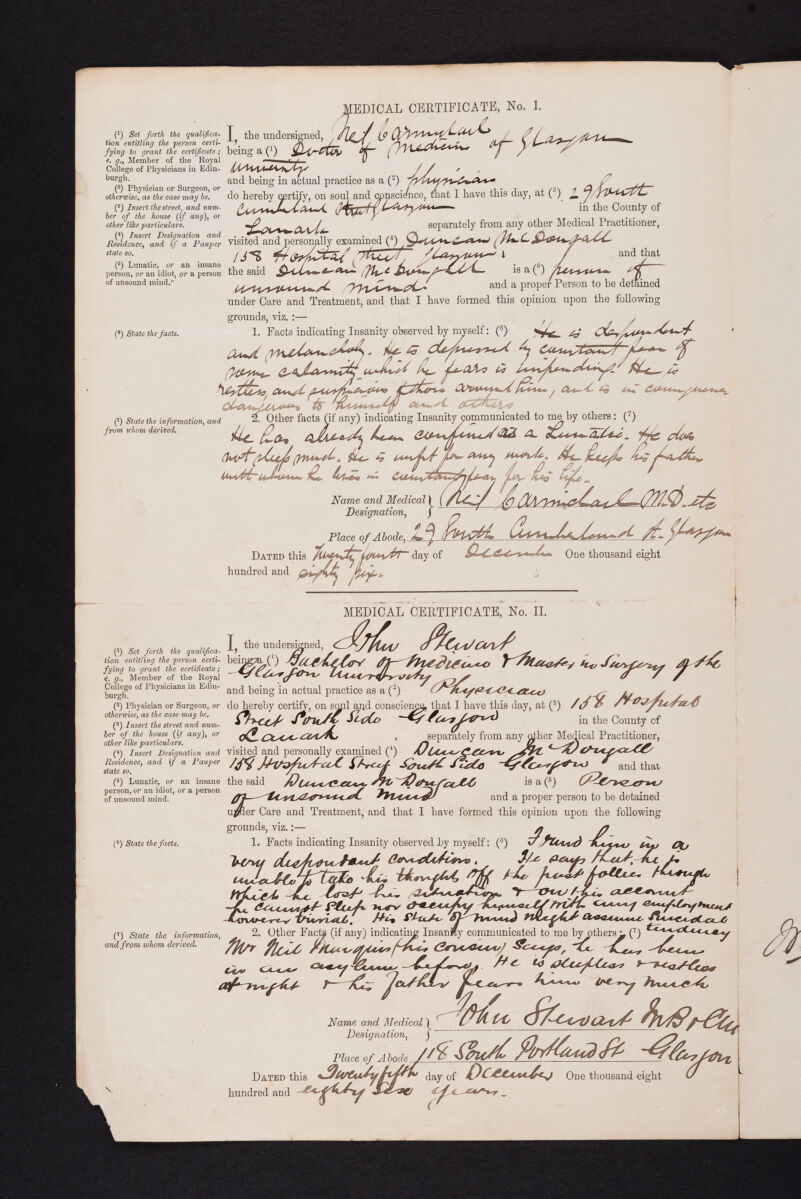 MEDICAL CERTIFICATE, No. I.
(1) Set forth the qualifica-
tion entitling the person certi-
fying to grant the certificate;
e. g., Member of the Royal
College of Physicians in Edin-
burgh.
(2) Physician or Surgeon, or
otherwise, as the case may be.
(3) Insert the street, and num-
ber of the house (if any), or
other like particulars.
(4) Insert Designation and
Residence, and if a Pauper
state so.
(5) Lunatic, or an insane
person, or an idiot, or a person
of unsound mind."
I, the undersigned, Neil Carmichael
being a (1) Doctor of Medicine of Glasgow
University
and being in actual practice as a (2) physician
do hereby certify, on soul and conscience, that I have this day, at (3) 29 South
Cumberland Street Glasgow in the County of
Lanark separately from any other Medical Practitioner,
visited and personally examined (4) Duncan McDougall
158 Hospital Street, Glasgow, and that
the said Duncan McDougall is a (5) person of
unsound mind. and a proper Person to be detained
under Care and Treatment, and that I have formed this opinion upon the following
grounds, viz. :—
(6) State the facts.
1. Facts indicating Insanity observed by myself: (6) He is despondent
and melancholy. He is depressed by constant fear of
some calamity which he fears is impending. He is
restless, and suspicious of those around him, and is in consequence
dangerous to himself and others
(7) State the information, and
from whom derived.
2. Other facts (if any) indicating Insanity communicated to me by others: (7)
He has already been confined as a Lunatic. He does
not sleep much. He is unfit for any work. He keeps his father
with whom he lives in constant fear for his life.
Name and Medical Designation, Neil Carmichael M.D. etc
Place of Abode, 29 South Cumberland St. Glasgow
DATED this Twenty fourth day of December One thousand eight
hundred and eighty six.
MEDICAL CERTIFICATE, No. II.
(1) Set forth the qualifica-
tion entitling the person certi-
fying to grant the certificate;
e. g., Member of the Royal
College of Physicians in Edin-
burgh.
(2) Physician or Surgeon, or
otherwise, as the case may be.
(3) Insert the street and num-
ber of the house (if any), or
other like particulars.
(4) Insert Designation and
Residence, and if a Pauper
state so.
(5) Lunatic, or an insane
person, or an idiot, or a person
of unsound mind.
I, the undersigned, John Stewart
being a (1) Bachelor of Medicine & Master in Surgery of the
Glasgow University
and being in actual practice as a (2) Physician
do hereby certify, on soul and conscience, that I have this day, at (3) 158 Hospital
Street South Side Glasgow in the County of
Lanark . separately from any other Medical Practitioner,
visited and personally examined (4) Duncan McDougall
158 Hospital Street South Side Glasgow and that
the said Duncan McDougall is a (5) Person
of unsound mind and a proper person to be detained
under Care and Treatment, and that I have formed this opinion upon the following
grounds, viz. :—
(6) State the facts.
1. Facts indicating Insanity observed by myself: (6) Found him in a
very despondant condition. He says that he is
unable to take his thoughts off the past follies through
which he lost his situation & on this account
he cannot sleep nor occupy himself with any employment
however trivial. His state of mind might assume suicidal
tendency
(7) State the information,
and from whom derived.
2. Other Facts (if any) indicating Insanity communicated to me by others: (7)
Mr Neil (his cousin) says, he has been
in an asylum before. He is sleepless & restless
at night & his father fears him very much
Name and Medical Designation, John Stewart MB & CM
Place of Abode 118 South Portland St Glasgow
DATED this Twenty fifth day of December One thousand eight
hundred and eighty six years.